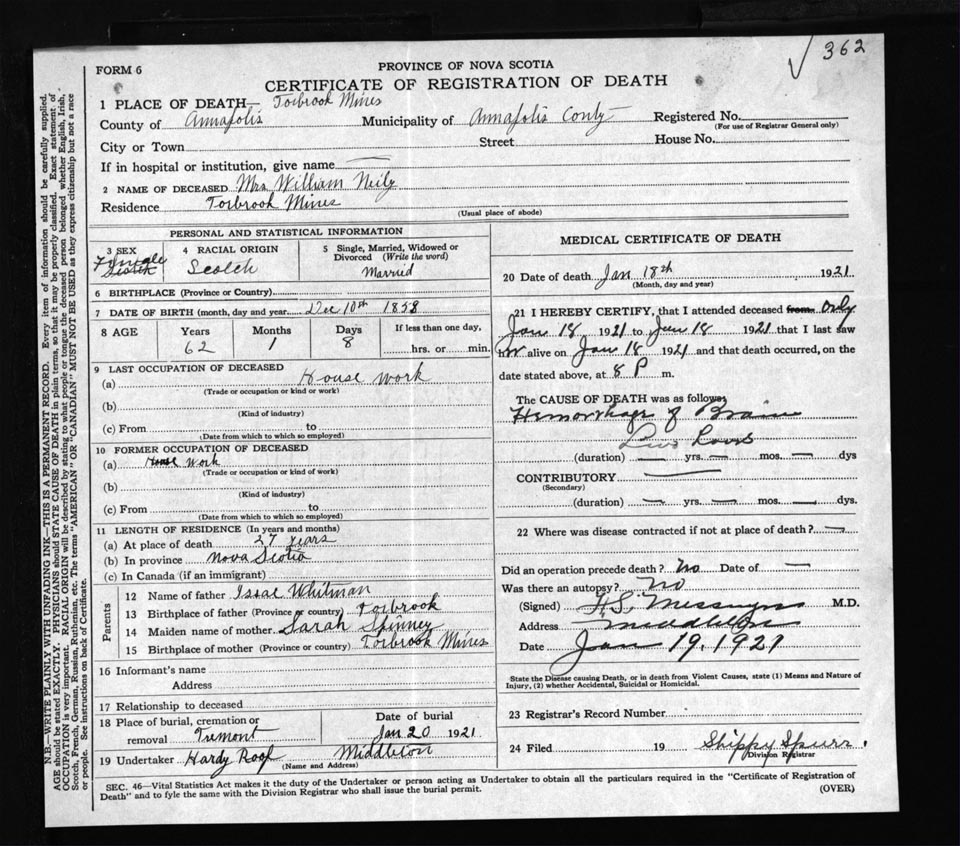 362
FORM 6
PROVINCE OF NOVA SCOTIA
CERTIFICATE OF REGISTRATION OF DEATH
1 PLACE OF DEATH— Torbrook Mines
County of Annapolis Municipality of Annapolis Conty Registered No.
(For use of Registrar General only)
City or Town Street House No.
If in hospital or institution, give name —
2 NAME OF DECEASED Mrs William Neily
Residence Torbrook Mines
(Usual place of abode)
PERSONAL AND STATISTICAL INFORMATION
3 SEX 4 RACIAL ORIGIN 5 Single, Married, Widowed or Divorced (Write the word)
Female Scotch Scotch Married
6 BIRTHPLACE (Province or Country)
7 DATE OF BIRTH (month, day and year) Dec 10th 1858
8 AGE Years Months Days If less than one day,
62 1 8 hrs. or min.
9 LAST OCCUPATION OF DECEASED
(a) House work
(Trade or occupation or kind or work)
(b)
(Kind of industry)
(c) From to
(Date from which to which so employed)
10 FORMER OCCUPATION OF DECEASED
(a) House work
(Trade or occupation or kind of work)
(b)
(Kind of industry)
(c) From to
(Date from which to which so employed)
11 LENGTH OF RESIDENCE (In years and months)
(a) At place of death 27 years
(b) In province Nova Scotia
(c) In Canada (if an immigrant)
Parents
12 Name of father Issac Whitman
13 Birthplace of father (Province or country) Torbrook
14 Maiden name of mother Sarah Spinney
15 Birthplace of mother (Province or country) Torbrook Mines
16 Informant's name
Address
17 Relationship to deceased
18 Place of burial, cremation or removal Tremont Date of burial Jan 20 1921.
19 Undertaker Hardy Roop Middleton
(Name and Address)
MEDICAL CERTIFICATE OF DEATH
20 Date of death Jan 18th 1921
(Month, day and year)
21 I HEREBY CERTIFY, that I attended deceased from Only
Jan 18 1921 to Jan 18 1921 that I last saw
her alive on Jan 18 1921 and that death occurred, on the
date stated above, at 8 P m.
The CAUSE OF DEATH was as follows:
Hemorrhage of Brain
(duration) — yrs. — mos. — dys
CONTRIBUTORY —
(Secondary)
(duration) — yrs. — mos. — dys.
22 Where was disease contracted if not at place of death? —
Did an operation precede death? No Date of —
Was there an autopsy? No
(Signed) M.D.
Address Middleton
Date Jan 19, 1921
State the Disease causing Death, or in death from Violent Causes, state (1) Means and Nature of
Injury, (2) whether Accidental, Suicidal or Homicidal.
23 Registrar's Record Number
24 Filed 19 Shippy Spurr
Division Registrar
SEC. 46—Vital Statistics Act makes it the duty of the Undertaker or person acting as Undertaker to obtain all the particulars required in the "Certificate of Registration of
Death" and to fyle the same with the Division Registrar who shall issue the burial permit. (OVER)
N.B.—WRITE PLAINLY WITH UNFADING INK—THIS IS A PERMANENT RECORD. Every item of information should be carefully supplied.
AGE should be stated EXACTLY. PHYSICIANS should STATE CAUSE OF DEATH in plain terms, so that it may be properly classified. Exact statement of
OCCUPATION is very important. RACIAL ORIGIN will be described by stating to what people or tongue the deceased person belonged whether English, Irish,
Scotch, French, German, Russian, Ruthenian, etc. The terms "AMERICAN" or "CANADIAN" MUST NOT BE USED as they express citizenship but not a race
or people. See instructions on back of Certificate.